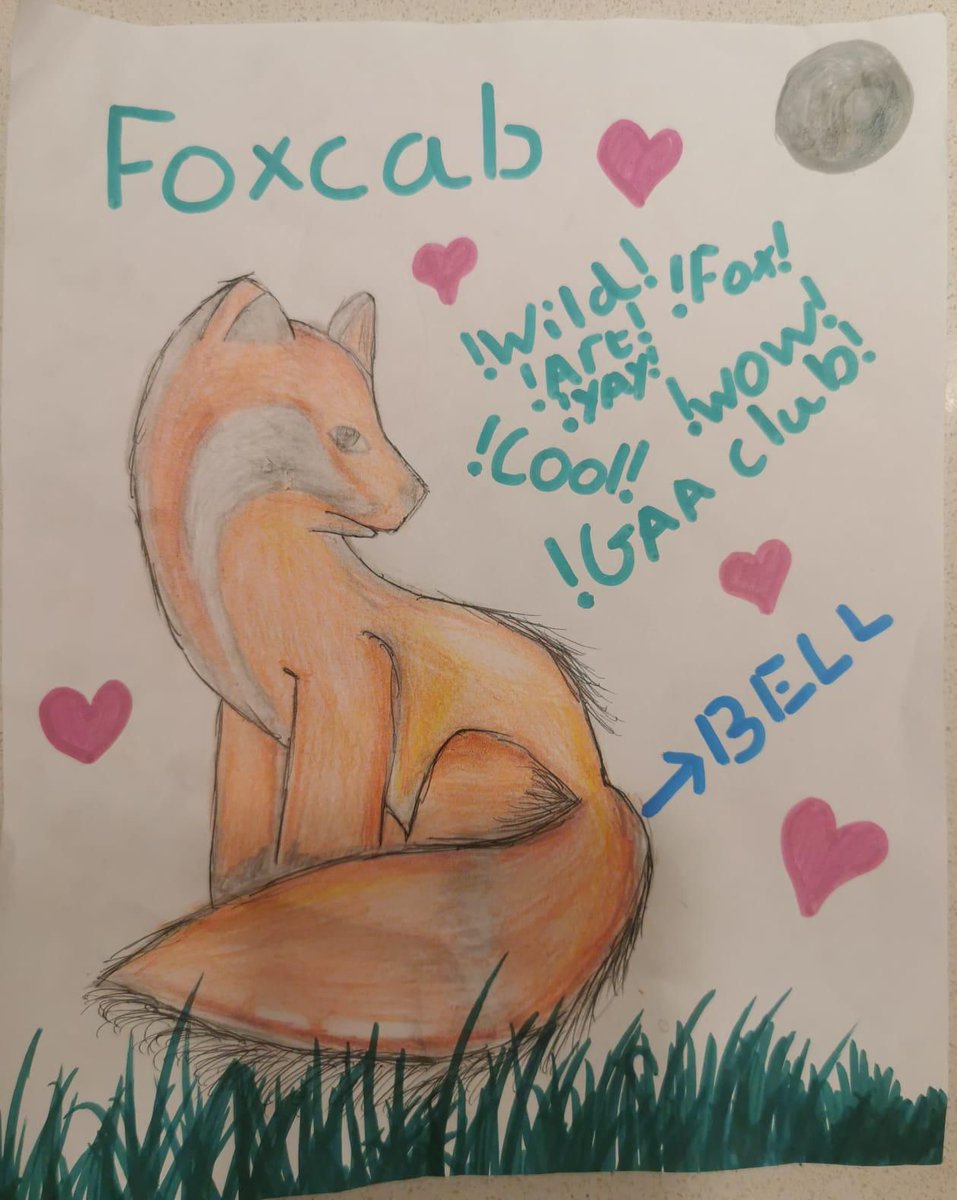 Foxcab
!Wild! !Fox!
!Art!
!YAY! !WOW!
!Cool!!
!GAA club!
→BELL